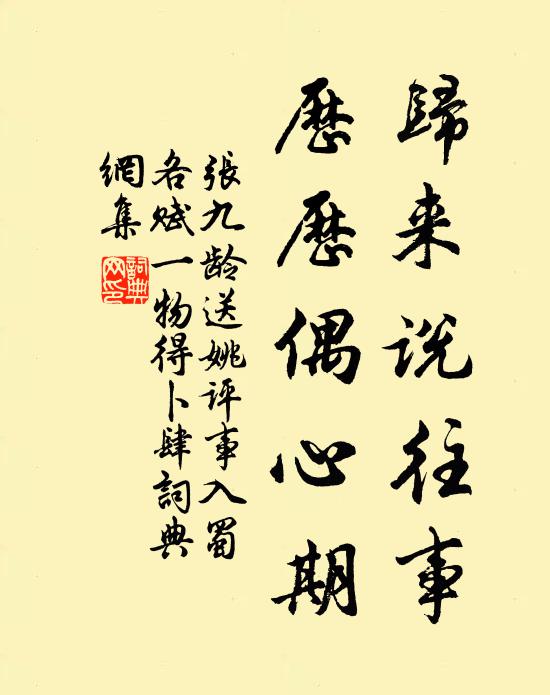 歸来説往事
歷歷偶心期
張九龄送姚評事入蜀
各赋一物得卜肆詞典
網集
詞典網印